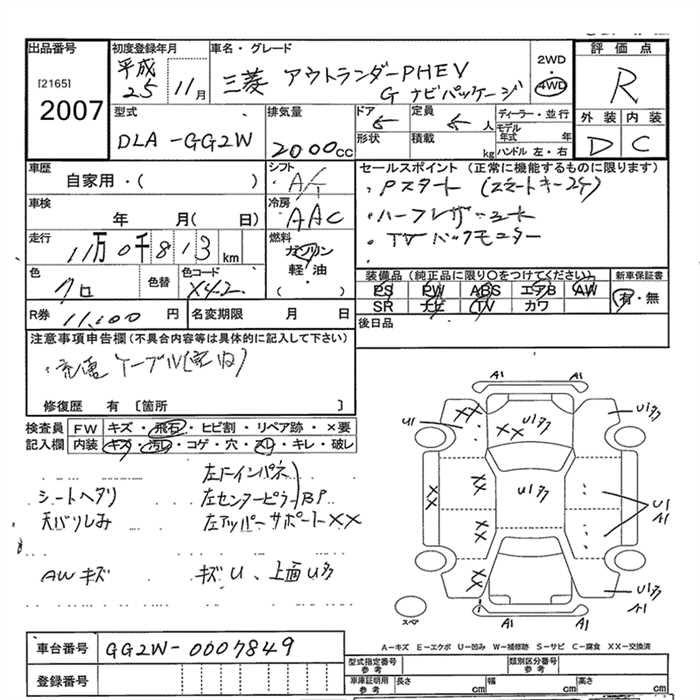 出品番号 初度登録年月 車名・グレード 評価点
[2165] 平成 2WD
2007 25 11月 三菱 アウトランダーPHEV 4WD R
G ナビパッケージ
型式 排気量 ドア 定員 ディーラー・並行 外装 内装
DLA-GG2W 2000cc ← ← 人 モデル年式 年
形状 積載 kg ハンドル 左・右 D C
車歴 シフト セールスポイント (正常に機能するものに限ります)
自家用・( ) A/T ・Pスタート (スマートキー2ケ)
車検 冷房 ・ハーフレザーシート
年 月( 日) AAC ・TVバックモニター
走行 燃料
11万0千813km ガソリン
軽・油
( )
色 色替 色コード 装備品 (純正品に限り○をつけてください) 新車保証書
クロ X42 PS PW ABS エアB AW 有・無
SR ナビ TV カワ
R券 11,100 円 名変期限 月 日 後日品
注意事項申告欄(不具合内容等は具体的に記入して下さい)
・充電ケーブル(室内)
修復歴 有 〔箇所 〕
検査員 FW キズ・飛石・ヒビ割・リペア跡・×要
記入欄 内装 キズ・汚レ・コゲ・穴・スレ・キレ・破レ
左にインパネ
シートヘタリ 左センターピラーBP
天バリしみ 左アッパーサポートXX
AWキズ キズU、上面Uタ
A1 A1
U1 XX XX U1タ U1タ
XX XX U1タ U1
A1
XX XX
U1タ
A1 A1
スペア
A-キズ E-エクボ U-凹み W-補修跡 S-サビ C-腐食 XX-交換済
車台番号 GG2W-0007849
登録番号
型式指定番号 参考 類別区分番号 参考
車庫証明用 参考 長さ cm 幅 cm 高さ cm